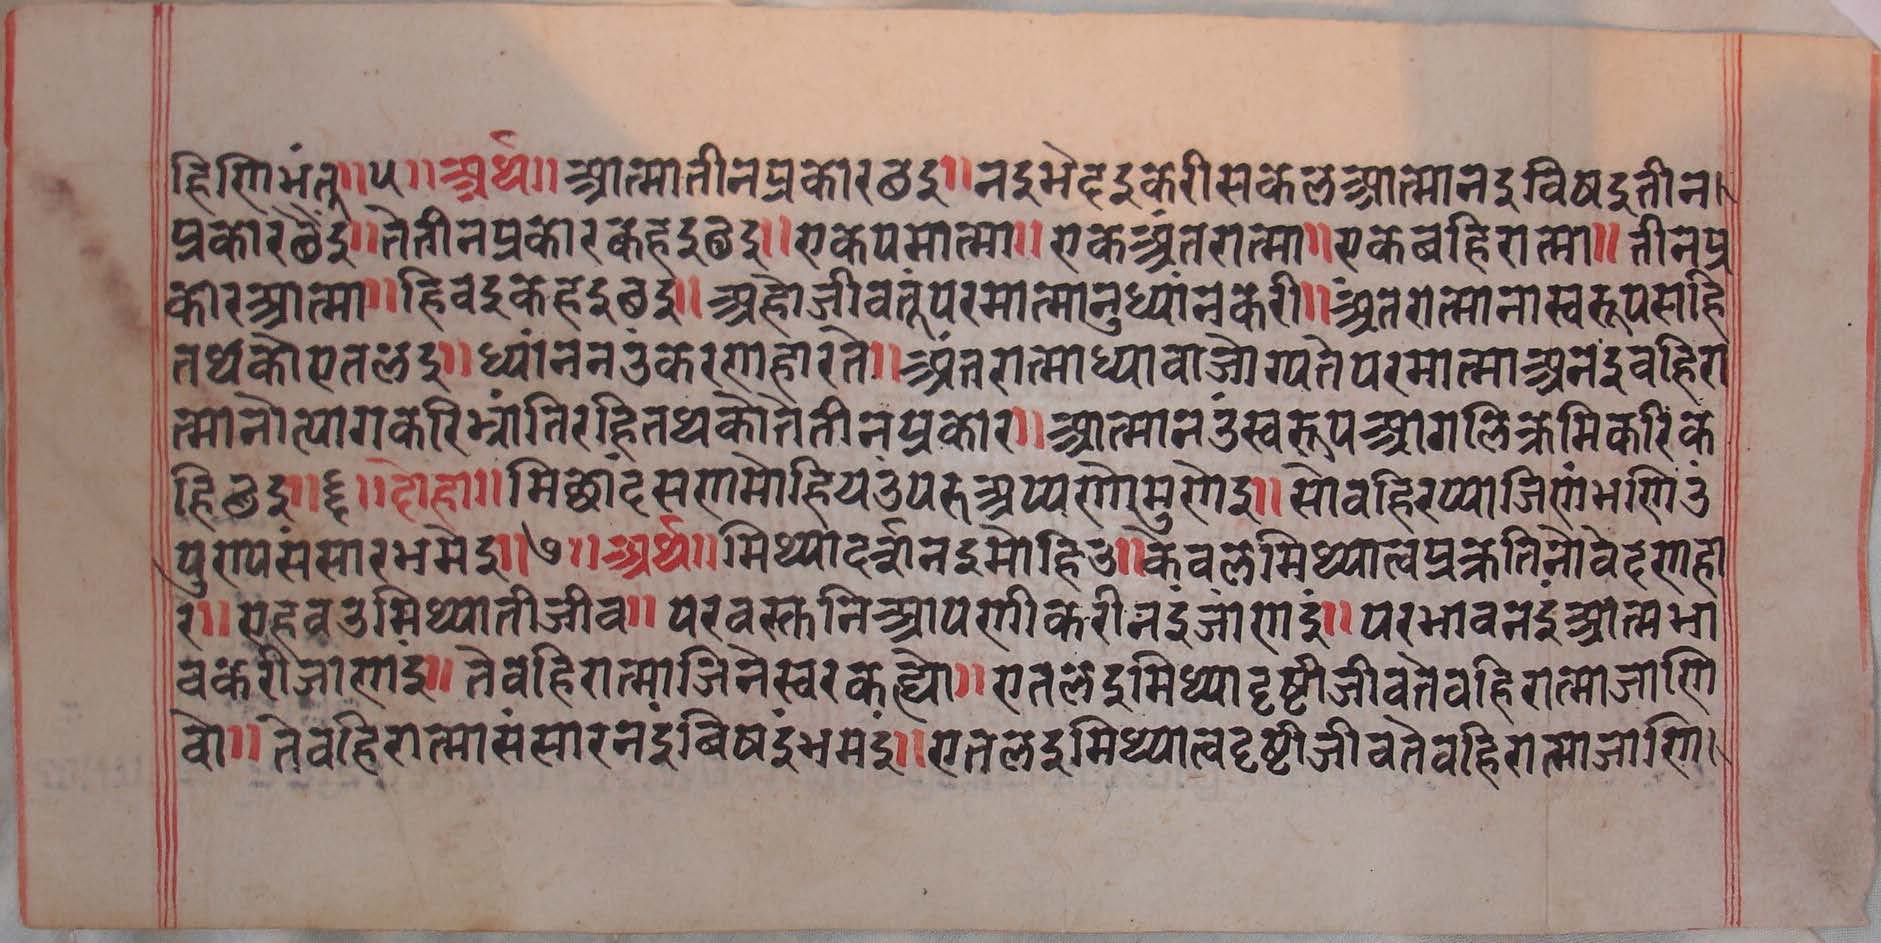 हिणिभंतू॥५॥अर्थ॥आत्मातीनप्रकारछइ॥नइभेदइकरीसकलआत्मानइविषइतीन।
प्रकारछैइं॥तेतीनप्रकारकहइछइ॥एकपमात्मा॥एकअंतरात्मा॥एकबहिरात्मा॥तीनप्र
कारआत्मा॥हिवइकहइछइ॥अहोजीवतूंपरमात्मानुध्यांनकरी॥अंतरात्मानास्वरूपसहि
तथकोएतलइ॥ध्यांननउंकरणाहारते॥अंतरात्माध्यावाजोग्यतेपरमात्माअनइंवहिरा
त्मानोत्यागकरिभ्रांतिरहितथकोतेतीनप्रकार॥आत्मानउंस्वरूपआगलिक्रमिकरिक
हिछइ॥६॥दोहा॥मिछादंसणमोहियउंपरुअप्पणोमुणेइ॥सोवहिरप्पाजिणंभणिउं
पुणपसंसारभमेइ॥७॥अर्थ॥मिथ्यादर्शनइमोहिउ॥केवलमिथ्यात्वप्रकृतिनोवेदणहा
र॥एहवउमिथ्यातीजीव॥परवस्तुनिआपणीकरीनइंजाणइं॥परभावनइंआत्मभा
वकरीजाणइं॥तेवहिरात्माजिनेस्वरकह्यो॥एतलइमिथ्यादृष्टीजीवतेवहिरात्माजाणि
वो॥तेवहिरात्मासंसारनइंविषइंभमइं॥एतलइमिथ्यात्वदृष्टीजीवतेवहिरात्माजाणि।